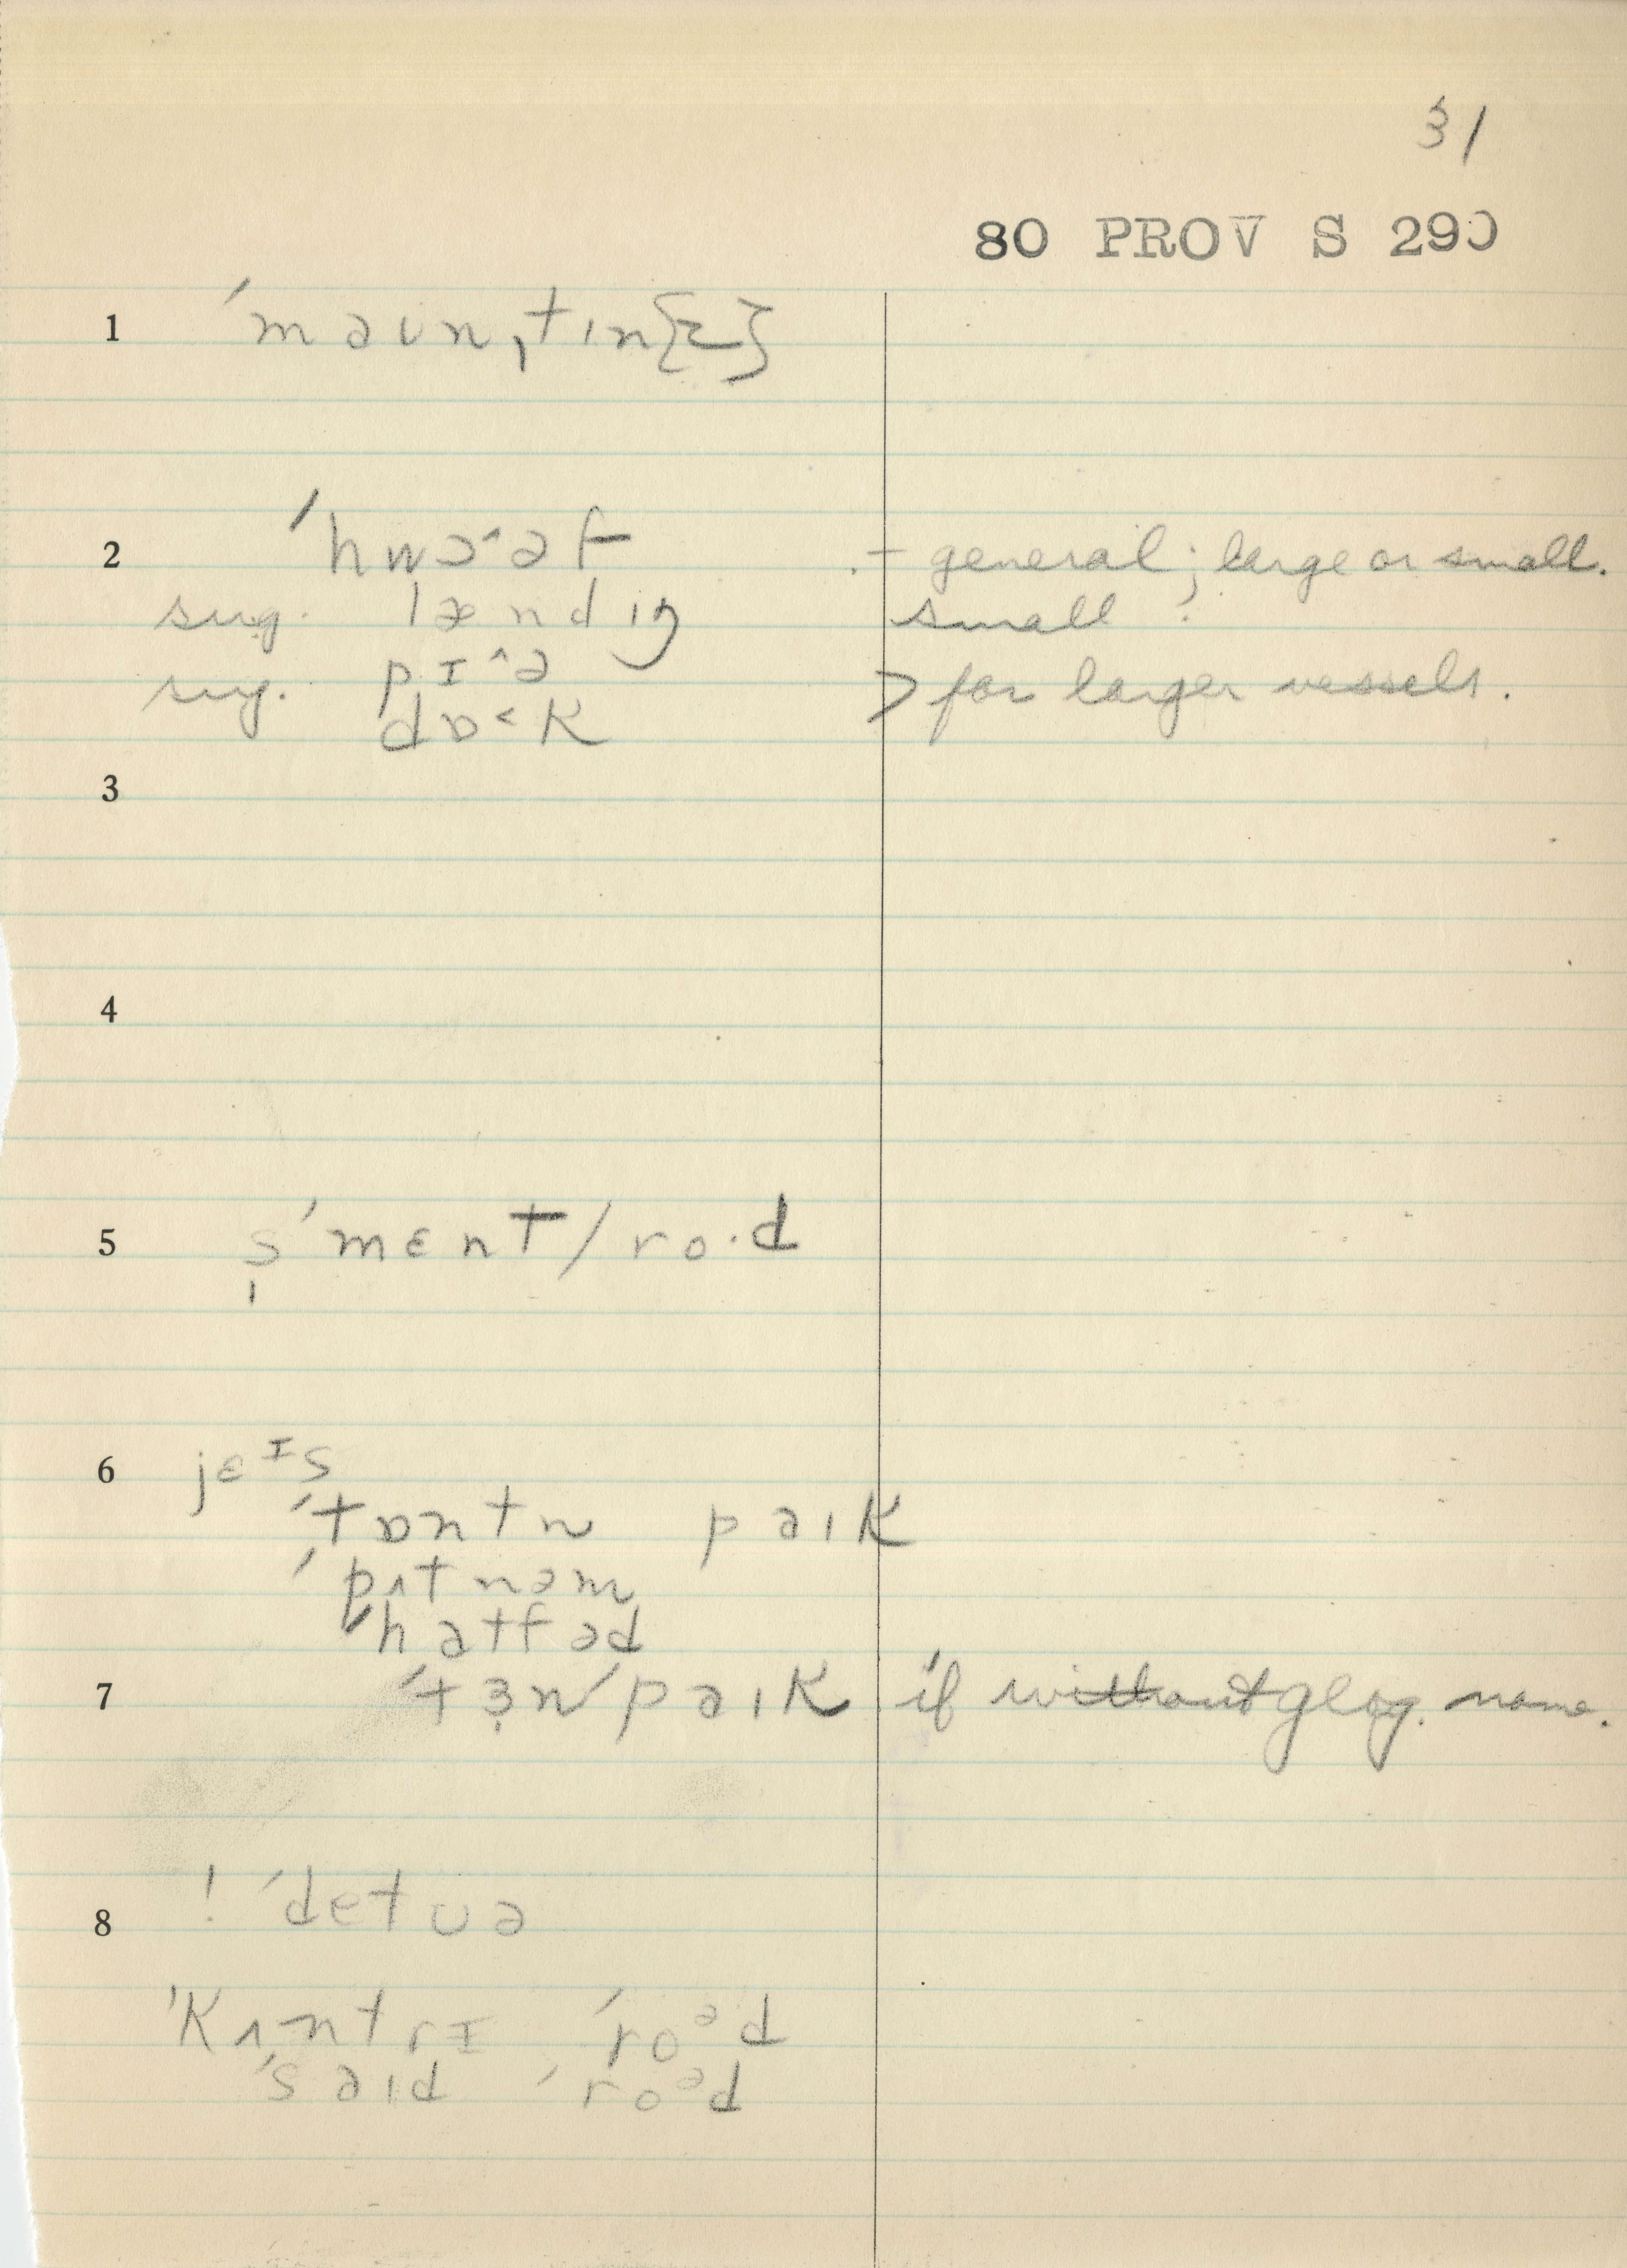 31
80 PROV S 290
1 ˈmaʊnˌtɪn{z}
2 ˈhwɔ˄əf - general; large or small.
sug. lændɪŋ small :
pɪ˄ə
sug. dɒ˂k > for larger vessels.
3
4
5 s̩ˈmɛnt/ro·d
6 jɛᶦs
ˈtɒntn paɪk
ˈpʌtnəm
ˈhatfəd
7 ˈtɜn/paɪk if without geog. name.
8 ! ˈdetʊə
ˈkʌntrɪ ˈroᵊd
ˈsaɪd ˈroᵊd